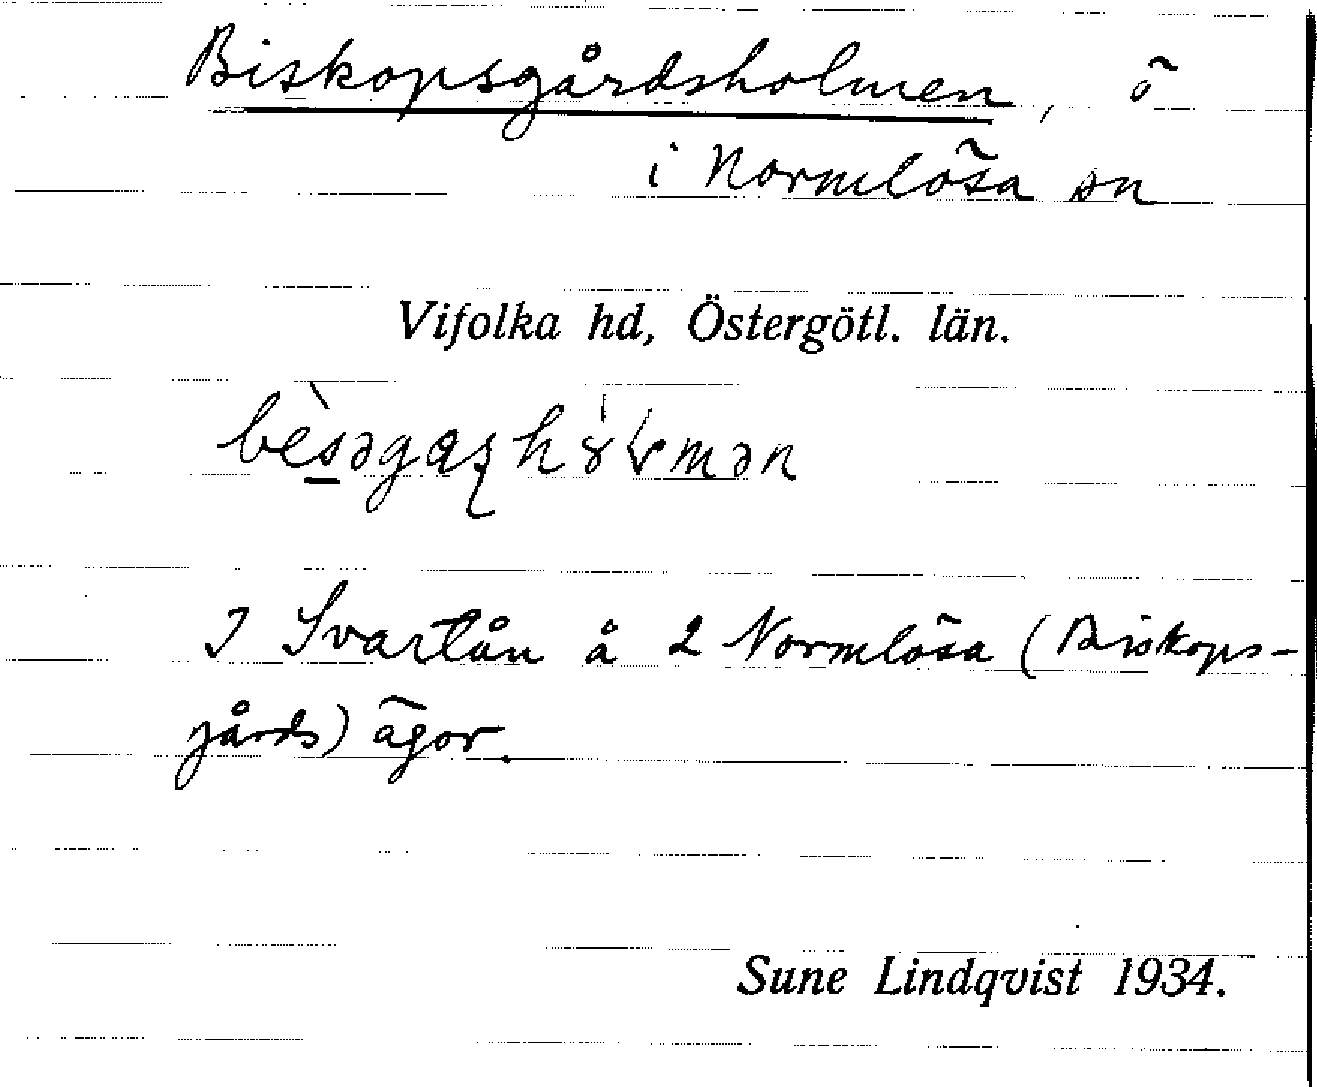 Biskopsgårdsholmen, ö
i Normlösa sn
Vifolka hd, Östergötl. län.
I Svartån å 2 Normlösa (Biskops-
gårds) ägor.
Sune Lindqvist 1934.